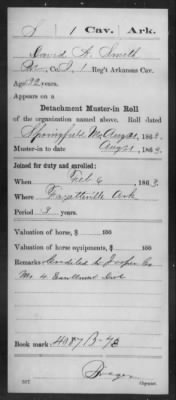 S | 1 | Cav. | Ark.
David A. Smith
Co. I, 1 Reg't Arkansas Cav.
Age 32 years.
Appears on a
Detachment Muster-in Roll
of the organization named above. Roll dated
Springfield Mo Aug 31, 1863.
Muster-in to date Aug 31, 1863.
Joined for duty and enrolled:
When Feb 6, 1863.
Where Fayetteville Ark
Period 3 years.
Valuation of horse, $ 100
Valuation of horse equipments, $ 100
Remarks Credited to Jasper Co
Mo. 4 Enrollment Dist
Book mark: 4087 B-73
(327) Copyist.